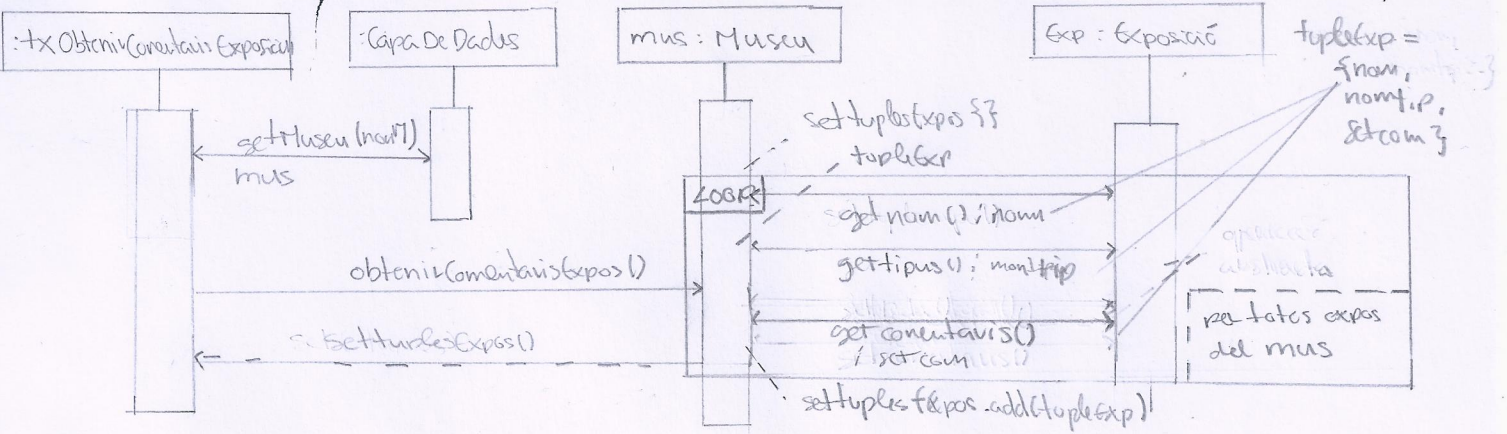 :txObtenirComentarisExposició
:CapaDeDades
mus : Museu
Exp : Exposició
tupleExp =
{nom,
nomtip,
setcom}
settuplesExpos {}
tupleExp
getMuseu (nomM)
mus
LOOP
getnom() ; nom
gettipus() ; nomtip
obtenirComentarisExpos()
getcomentaris()
; setcom
per totes expos
del mus
settuplesExpos()
settuplesExpos.add(tupleExp)